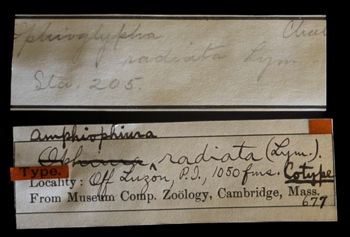 Ophioglypha Chal
radiata Lym.
Sta. 205.
Amphiophiura
Ophiura radiata (Lym).
Type. Cotype
Locality: Off Luzôn, P.I., 1050 fms.
From Museum Comp. Zoölogy, Cambridge, Mass.
677